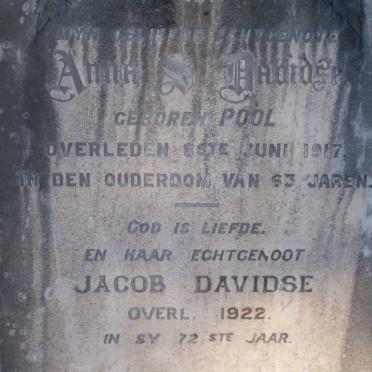 MYN GELIEFDE ECHTGENOTE
Anna S. Davidse.
GEBOREN POOL
OVERLEDEN 8STE JUNI 1917,
IN DEN OUDERDOM VAN 63 JAREN.
GOD IS LIEFDE.
EN HAAR ECHTGENOOT
JACOB DAVIDSE
OVERL. 1922.
IN SY 72 STE JAAR.